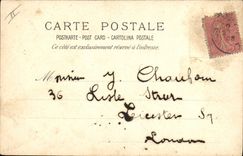 II
CARTE POSTALE
POSTKARTE - POST CARD - CARTOLINA POSTALE
Ce côté est exclusivement réservé à l'adresse.
Monsieur J. Chauhain
36 Lisle Street
Leicester Sq
London